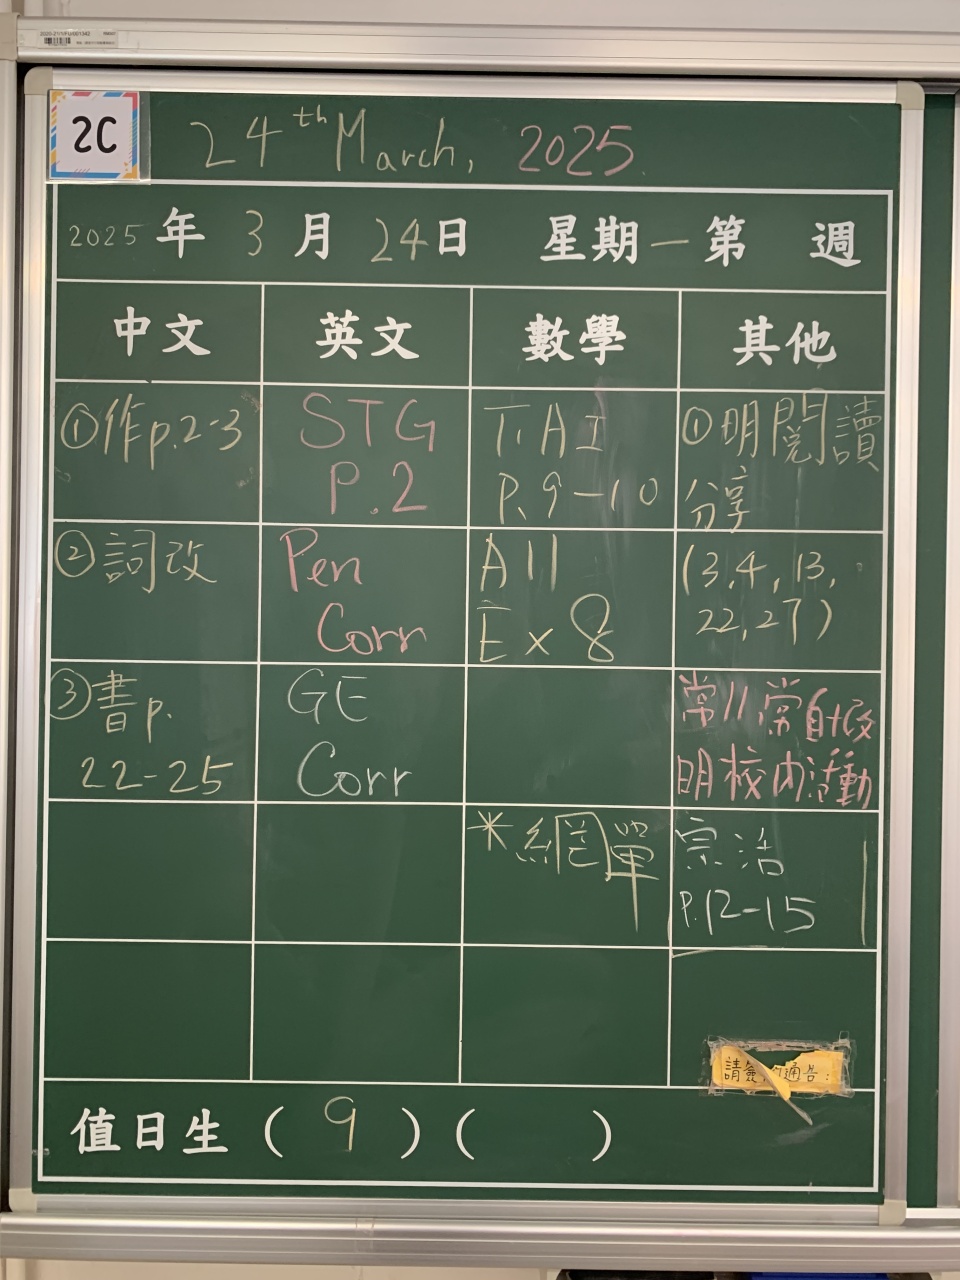 2020-21/NFU/001342
2C
24th March, 2025.
2025 年 3 月 24 日 星期一 第 週
中文 英文 數學 其他
①作p.2-3
STG
P.2
P.9-10
①明閱讀
分享
②詞改
Pen
Corr
A11
Ex 8
(3,4,13,
22,27)
③書p.
22-25
GE
Corr
常11,常自改
明校內活動
*網單
宗浩
P.12-15
請簽 通告:
值日生 ( 9 ) ( )